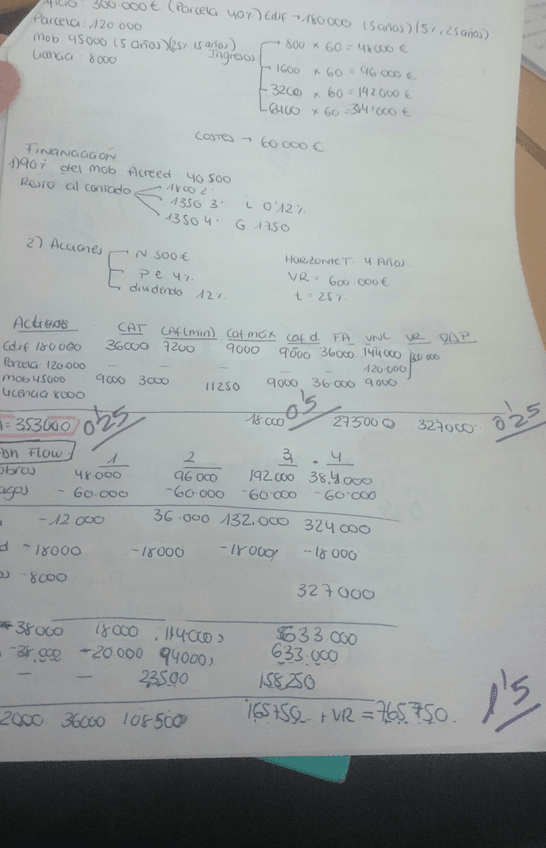 300.000€ (Parcela 40%) Edif → 180000 (5 años) (5%, 25 años)
Parcela: 120 000
Mob 45000 (5 años) (25% 15 años)
Licencia: 8000
Ingresos
800 x 60 = 48000 €
1600 x 60 = 96 000 €
3200 x 60 = 192 000 €
6400 x 60 = 384 000 €
COSTES → 60 000 €
Financiación
1) 90% del mob Acreed 40 500
Resto al contado
1800 2
1350 3 i 0'12%
1350 4 G 1750
2) Acciones
N 500€
Pe 4%
dividendo 12%
HORIZONTE T. 4 Años
VR = 600 000 €
t = 25%
Activos CAT CAF (min) Caf max caf d FA VNC VR
Edif 180 000 36000 7200 9000 9000 36000 144000
Parcela 120.000 — — — — 120.000
mob 45000 9000 3000 11250 9000 36.000 9000
Licencia 8000
= 353000 0'25 18.000 0'5 273000 327000 0'25
Flow 1 2 3 4
cobros 48.000 96.000 192.000 384.000
pagos -60.000 -60.000 -60.000 -60.000
-12 000 36.000 132.000 324 000
-18000 -18000 -18000 -18 000
-8000 327 000
-38000 18000 114000 633 000
-38.000 -20 000 94000 633.000
— — 23500 158250
36000 108500 165750 + VR = 765750. 1'5